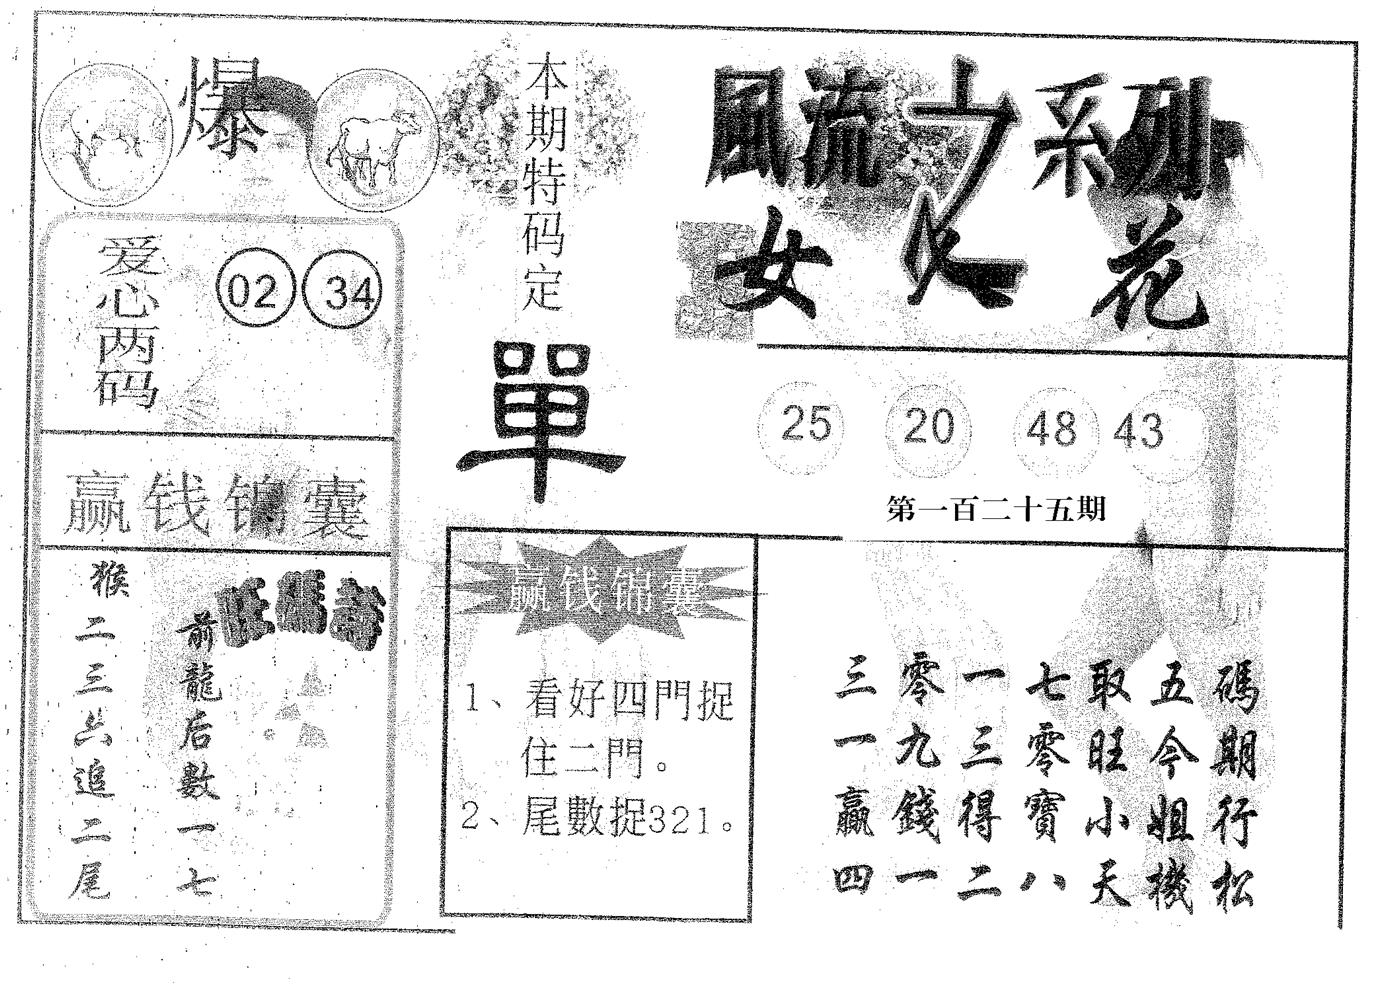 爆
本期特码定
單
爱心两码
02 34
赢钱锦囊
猴二三六追二尾
前龍后數一七
旺碼詩
風流之系列
女人花
25 20 48 43
第一百二十五期
赢钱锦囊
1、看好四門捉
住二門。
2、尾數捉321。
三零一七取五碼
一九三零旺今期
贏錢得寶小姐行
四一二八天機松